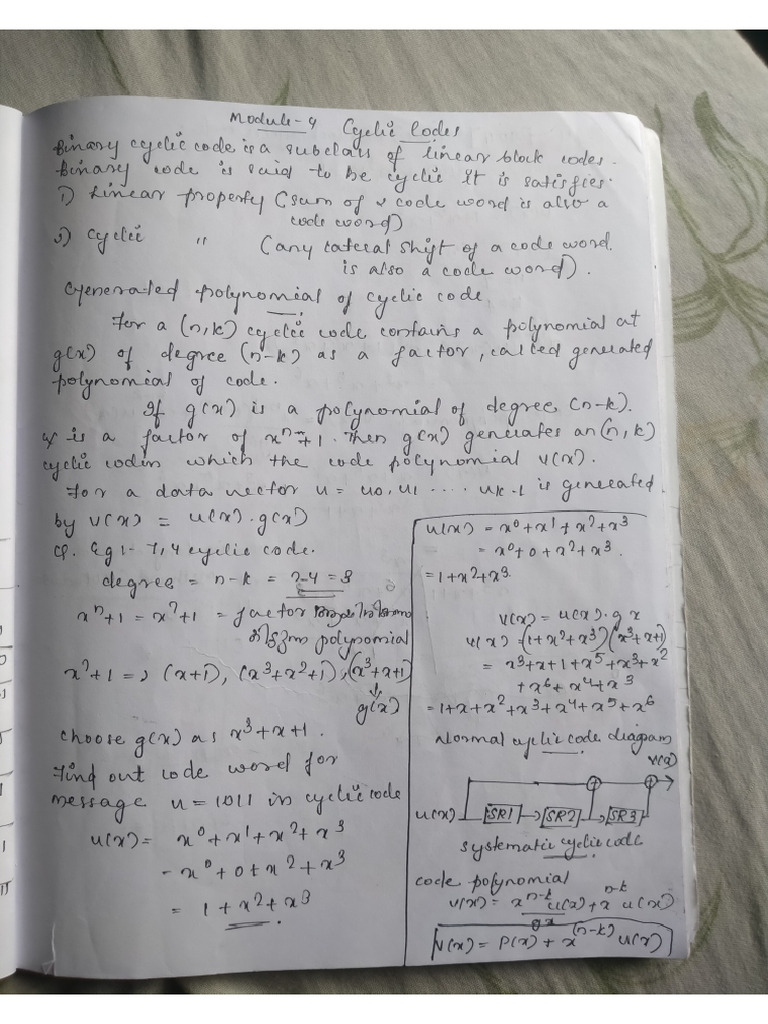 Module-4 Cyclic Codes
Binary cyclic code is a subclass of linear block codes.
Binary code is said to be cyclic it is satisfies.
1) Linear property (sum of 2 code word is also a
code word)
2) cyclic " (any lateral shift of a code word
is also a code word).
Generated polynomial of cyclic code
For a (n,k) cyclic code contains a polynomial at
g(x) of degree (n-k) as a factor, called generated
polynomial of code.
If g(x) is a polynomial of degree (n-k).
& is a factor of xⁿ+1. Then g(x) generates an (n,k)
cyclic code in which the code polynomial v(x).
For a data vector u = u0, u1 .... uk-1 is generated
by v(x) = u(x).g(x)
Q. Eg 1- 7,4 cyclic code.
degree = n-k = 7-4 = 3
xⁿ+1 = x⁷+1 = factor
polynomial
x⁷+1 => (x+1), (x³+x²+1), (x³+x+1)
↓
g(x)
choose g(x) as x³+x+1.
Find out code word for
message u = 1011 in cyclic code
u(x) = x⁰+x¹+x²+x³
= x⁰+0+x²+x³
= 1+x²+x³
u(x) = x⁰+x¹+x²+x³
= x⁰+0+x²+x³.
= 1+x²+x³
v(x) = u(x).g x
v(x) = (1+x²+x³)(x³+x+1)
= x³+x+1+x⁵+x³+x²
+x⁶+x⁴+x³
= 1+x+x²+x³+x⁴+x⁵+x⁶
Normal cyclic code diagram
v(x)
u(x) SR1 → SR2 → SR3
systematic cyclic code
code polynomial
v(x) = x^n-k u(x) + x^n-k u(x)
gx
v(x) = P(x) + x^(n-k) u(x)